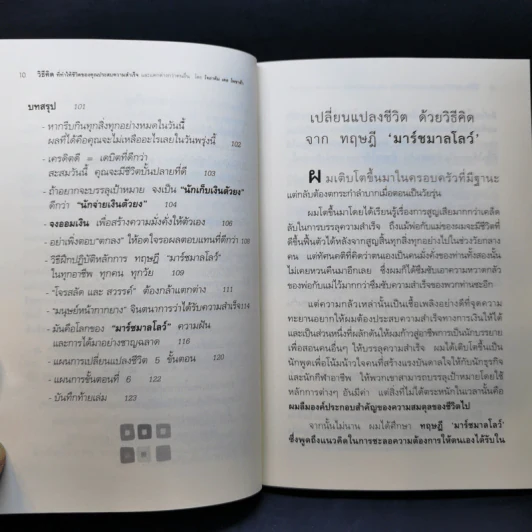 10 วิธีคิด ที่ทำให้ชีวิตของคุณประสบความสำเร็จ
บทสรุป 101
- หากรีบกินทุกสิ่งทุกอย่างหมดในวันนี้
ผลที่ได้คือคุณจะไม่เหลืออะไรเลยในวันพรุ่งนี้ 102
- เครดิตดี = เดบิตที่ดีกว่า
สะสมวันนี้ คุณจะมีชีวิตบั้นปลายที่ดี 103
- ถ้าอยากจะบรรลุเป้าหมาย จงเป็น "นักเก็บเงินตัวยง"
ดีกว่า "นักจ่ายเงินตัวยง" 104
- จงออมเงิน เพื่อสร้างความมั่งคั่งให้ตัวเอง 106
- อย่าเพิ่งตอบ "ตกลง" ให้อดใจรอผลตอบแทนที่ดีกว่า 108
- วิธีฝึกปฏิบัติหลักการ ทฤษฎี "มาร์ชมาลโลว์"
ในทุกอาชีพ ทุกคน ทุกวัย 109
- "โจรสลัด และ สวรรค์" ต้องกล้าแตกต่าง 111
- "มนุษย์หน้ากากยาง" จินตนาการว่าได้รับความสำเร็จ
- มันคือโลกของ "มาร์ชมาลโลว์" ความฝัน
และการได้มาอย่างชาญฉลาด 116
- แผนการเปลี่ยนแปลงชีวิต 5 ขั้นตอน 120
- แผนการขั้นตอนที่ 6 122
- บันทึกท้ายเล่ม 123
เปลี่ยนแปลงชีวิต ด้วยวิธีคิด
จาก ทฤษฎี 'มาร์ชมาลโลว์'
ผมเติบโตขึ้นมาในครอบครัวที่มีฐานะ
แต่กลับต้องตกระกำลำบากเมื่อตอนเป็นวัยรุ่น
ผมโตขึ้นมาโดยได้เรียนรู้เรื่องการสูญเสียมากกว่าเคล็ด
ลับในการบรรลุความสำเร็จ ถึงแม้พ่อกับแม่ของผมจะมีชีวิตที่
ดีขึ้นฟื้นตัวได้หลังจากสูญสิ้นทุกสิ่งทุกอย่างไปในช่วงวัยกลาง
คน แต่ทัศนคติที่คิดว่าตนเองเป็นคนมั่งคั่งของท่านทั้งสองนั้น
ไม่เคยหวนคืนมาอีกเลย ซึ่งผมก็ได้ซึมซับเอาความหวาดกลัว
ของพ่อกับแม่ไว้มากกว่าซึมซับความสำเร็จของพวกท่านซะอีก
แต่ความกลัวเหล่านั้นเป็นเชื้อเพลิงอย่างดีที่จุดความ
ทะยานอยากให้ผมต้องประสบความสำเร็จทางการเงินให้ได้
และเป็นส่วนหนึ่งที่ผลักดันให้ผมก้าวสู่อาชีพการเป็นนักบรรยาย
เพื่อสอนคนอื่นๆ ให้บรรลุความสำเร็จ ผมได้เติบโตขึ้นเป็น
นักพูดเพื่อโน้มน้าวใจคนที่สร้างแรงบันดาลใจให้กับนักธุรกิจ
และนักกีฬาอาชีพ ให้พวกเขาสามารถบรรลุเป้าหมายโดยใช้
หลักการต่างๆ อันมีค่า แต่สิ่งที่ไม่ได้ตระหนักในเวลานั้นคือ
ผมลืมองค์ประกอบสำคัญของความสมดุลของชีวิตไป
จากนั้นไม่นาน ผมได้ศึกษา ทฤษฎี 'มาร์ชมาลโลว์'
ซึ่งพูดถึงแนวคิดในการชะลอความต้องการให้ตนเองได้รับใน